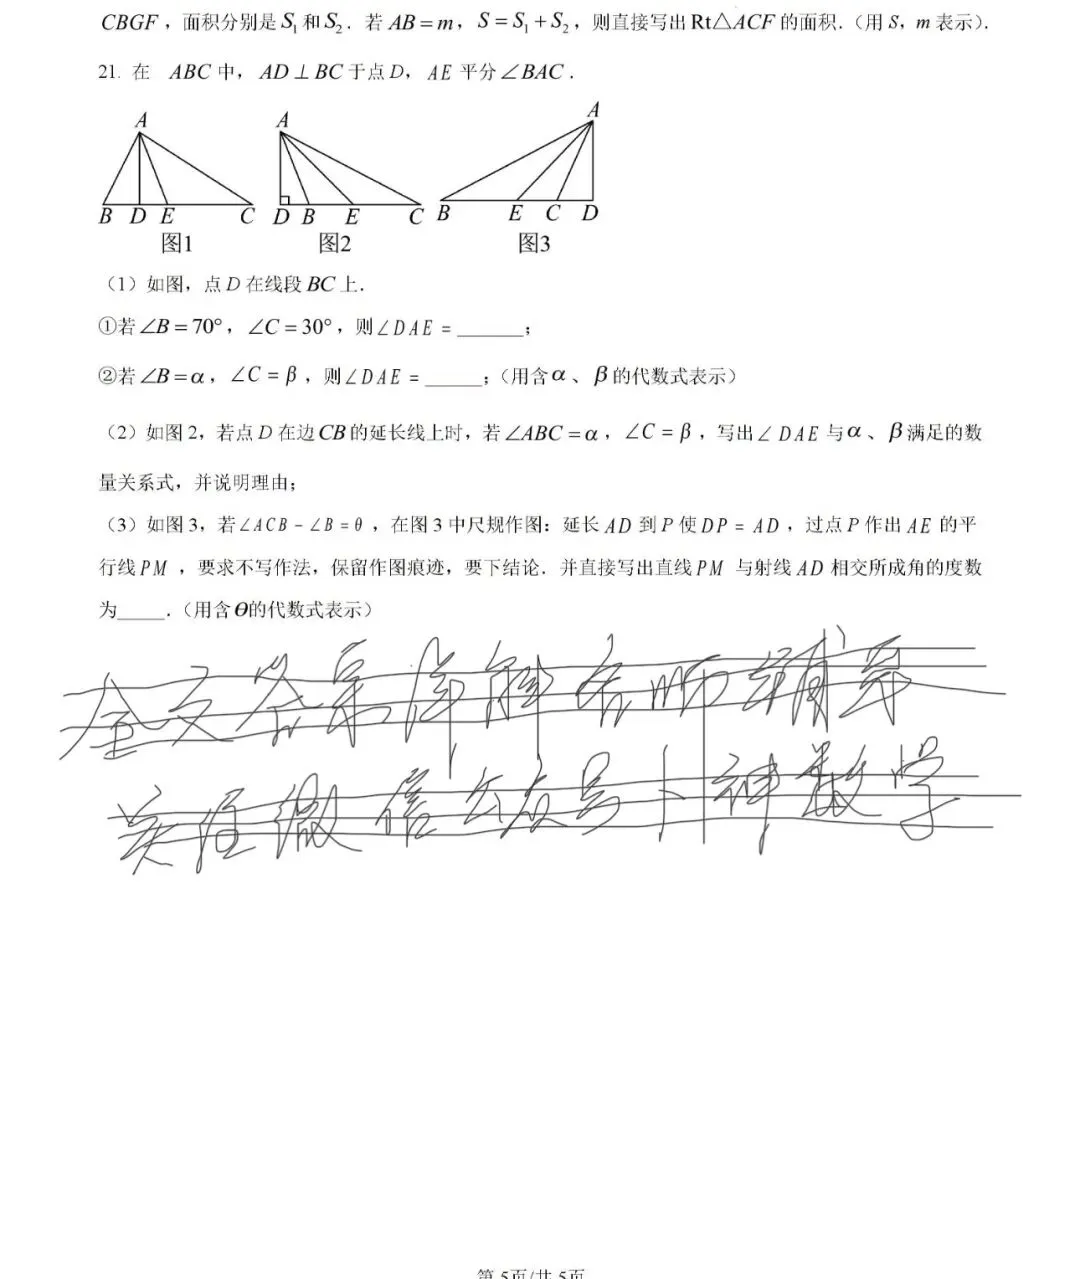 CBGF，面积分别是 S₁ 和 S₂．若 AB＝m，S＝S₁＋S₂，则直接写出 Rt△ACF 的面积．（用 S，m 表示）．
21. 在 ABC 中，AD⊥BC 于点 D，AE 平分∠BAC．
A
B D E C
图1
A
D B E C
图2
A
B E C D
图3
（1）如图，点 D 在线段 BC 上．
①若∠B＝70°，∠C＝30°，则∠DAE＝______；
②若∠B＝α，∠C＝β，则∠DAE＝_____；（用含α、β的代数式表示）
（2）如图 2，若点 D 在边 CB 的延长线上时，若∠ABC＝α，∠C＝β，写出∠DAE 与α、β满足的数
量关系式，并说明理由；
（3）如图 3，若∠ACB－∠B＝θ，在图 3 中尺规作图：延长 AD 到 P 使 DP＝AD，过点 P 作出 AE 的平
行线 PM，要求不写作法，保留作图痕迹，要下结论．并直接写出直线 PM 与射线 AD 相交所成角的度数
为____．（用含θ的代数式表示）
全文答案详解名师辅导
关注微信公众号卜神数学
第 5页/共 5页